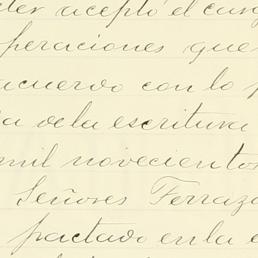 ter aceptó el carg
peraciones que
acuerdo con lo p
ia de la escritura
mil novecientos
Señores Ferraz
pactado en la e